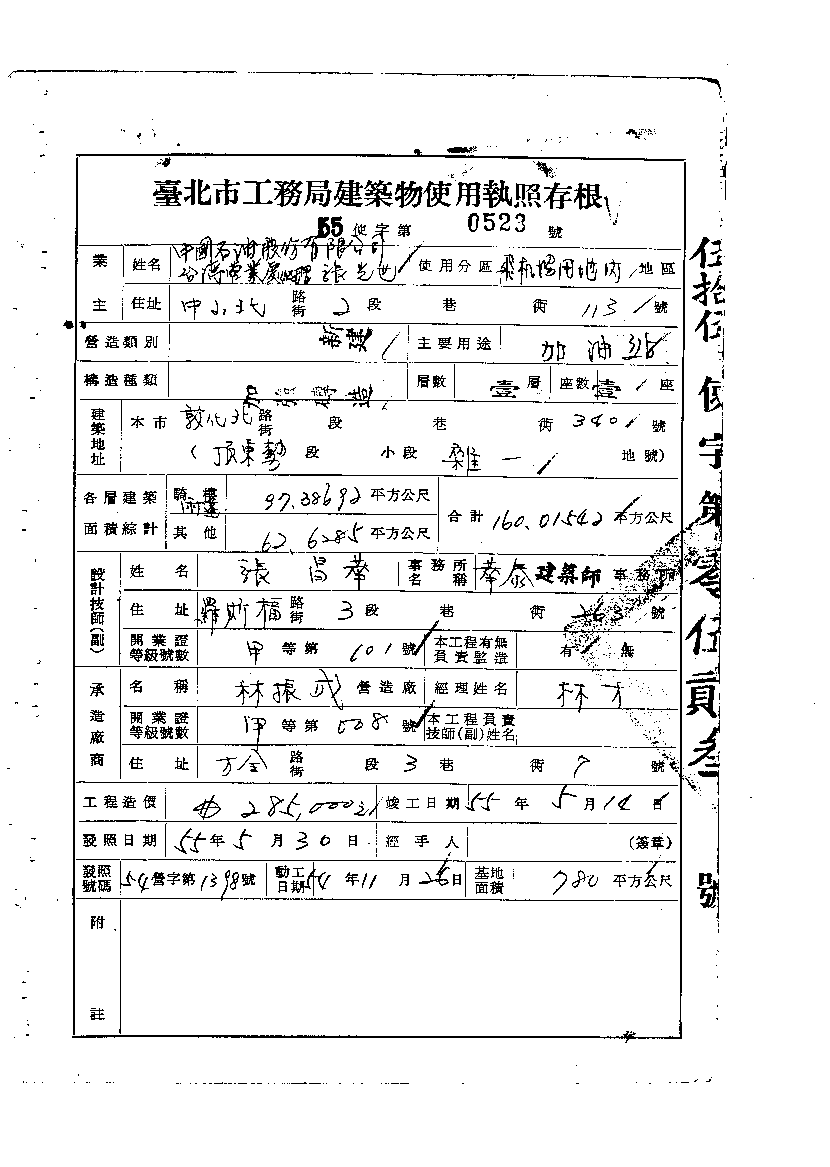 臺北市工務局建築物使用執照存根
55 使字第 0523 號
業主 姓名 中國石油股份有限公司 台灣營業處經理 張光世 使用分區 飛機場用地內 地區
住址 中山北 路街 2 段 巷 街 113 號
營造類別 新建 主要用途 加油站
構造種類 加強磚造 層數 壹 層 座數 壹 座
建築地址 本市 敦化北 路街 段 巷 街 340 號
( 頂東勢 段 小段 雜一 地號)
各層建築面積綜計 騎樓 雨遮 97.38692 平方公尺 合計 160.01542 平方公尺
其他 62.6285 平方公尺
設計技師(副) 姓名 張昌華 事務所名稱 華泰建築師事務所
住址 羅斯福 路街 3 段 巷 街 號
開業證等級號數 甲 等第 601 號 本工程有無負責監造 有 無
承造廠商 名稱 林振成 營造廠 經理姓名 林才
開業證等級號數 甲 等第 008 號 本工程負責技師(副)姓名
住址 萬全 路街 段 3 巷 街 7 號
工程造價 285,000 竣工日期 55 年 5 月 14 日
發照日期 55 年 5 月 30 日 經手人 (簽章)
發照號碼 54 營字第 1398 號 動工日期 54 年 11 月 26 日 基地面積 780 平方公尺
附註
伍拾伍 使字第 零伍貳叁 號